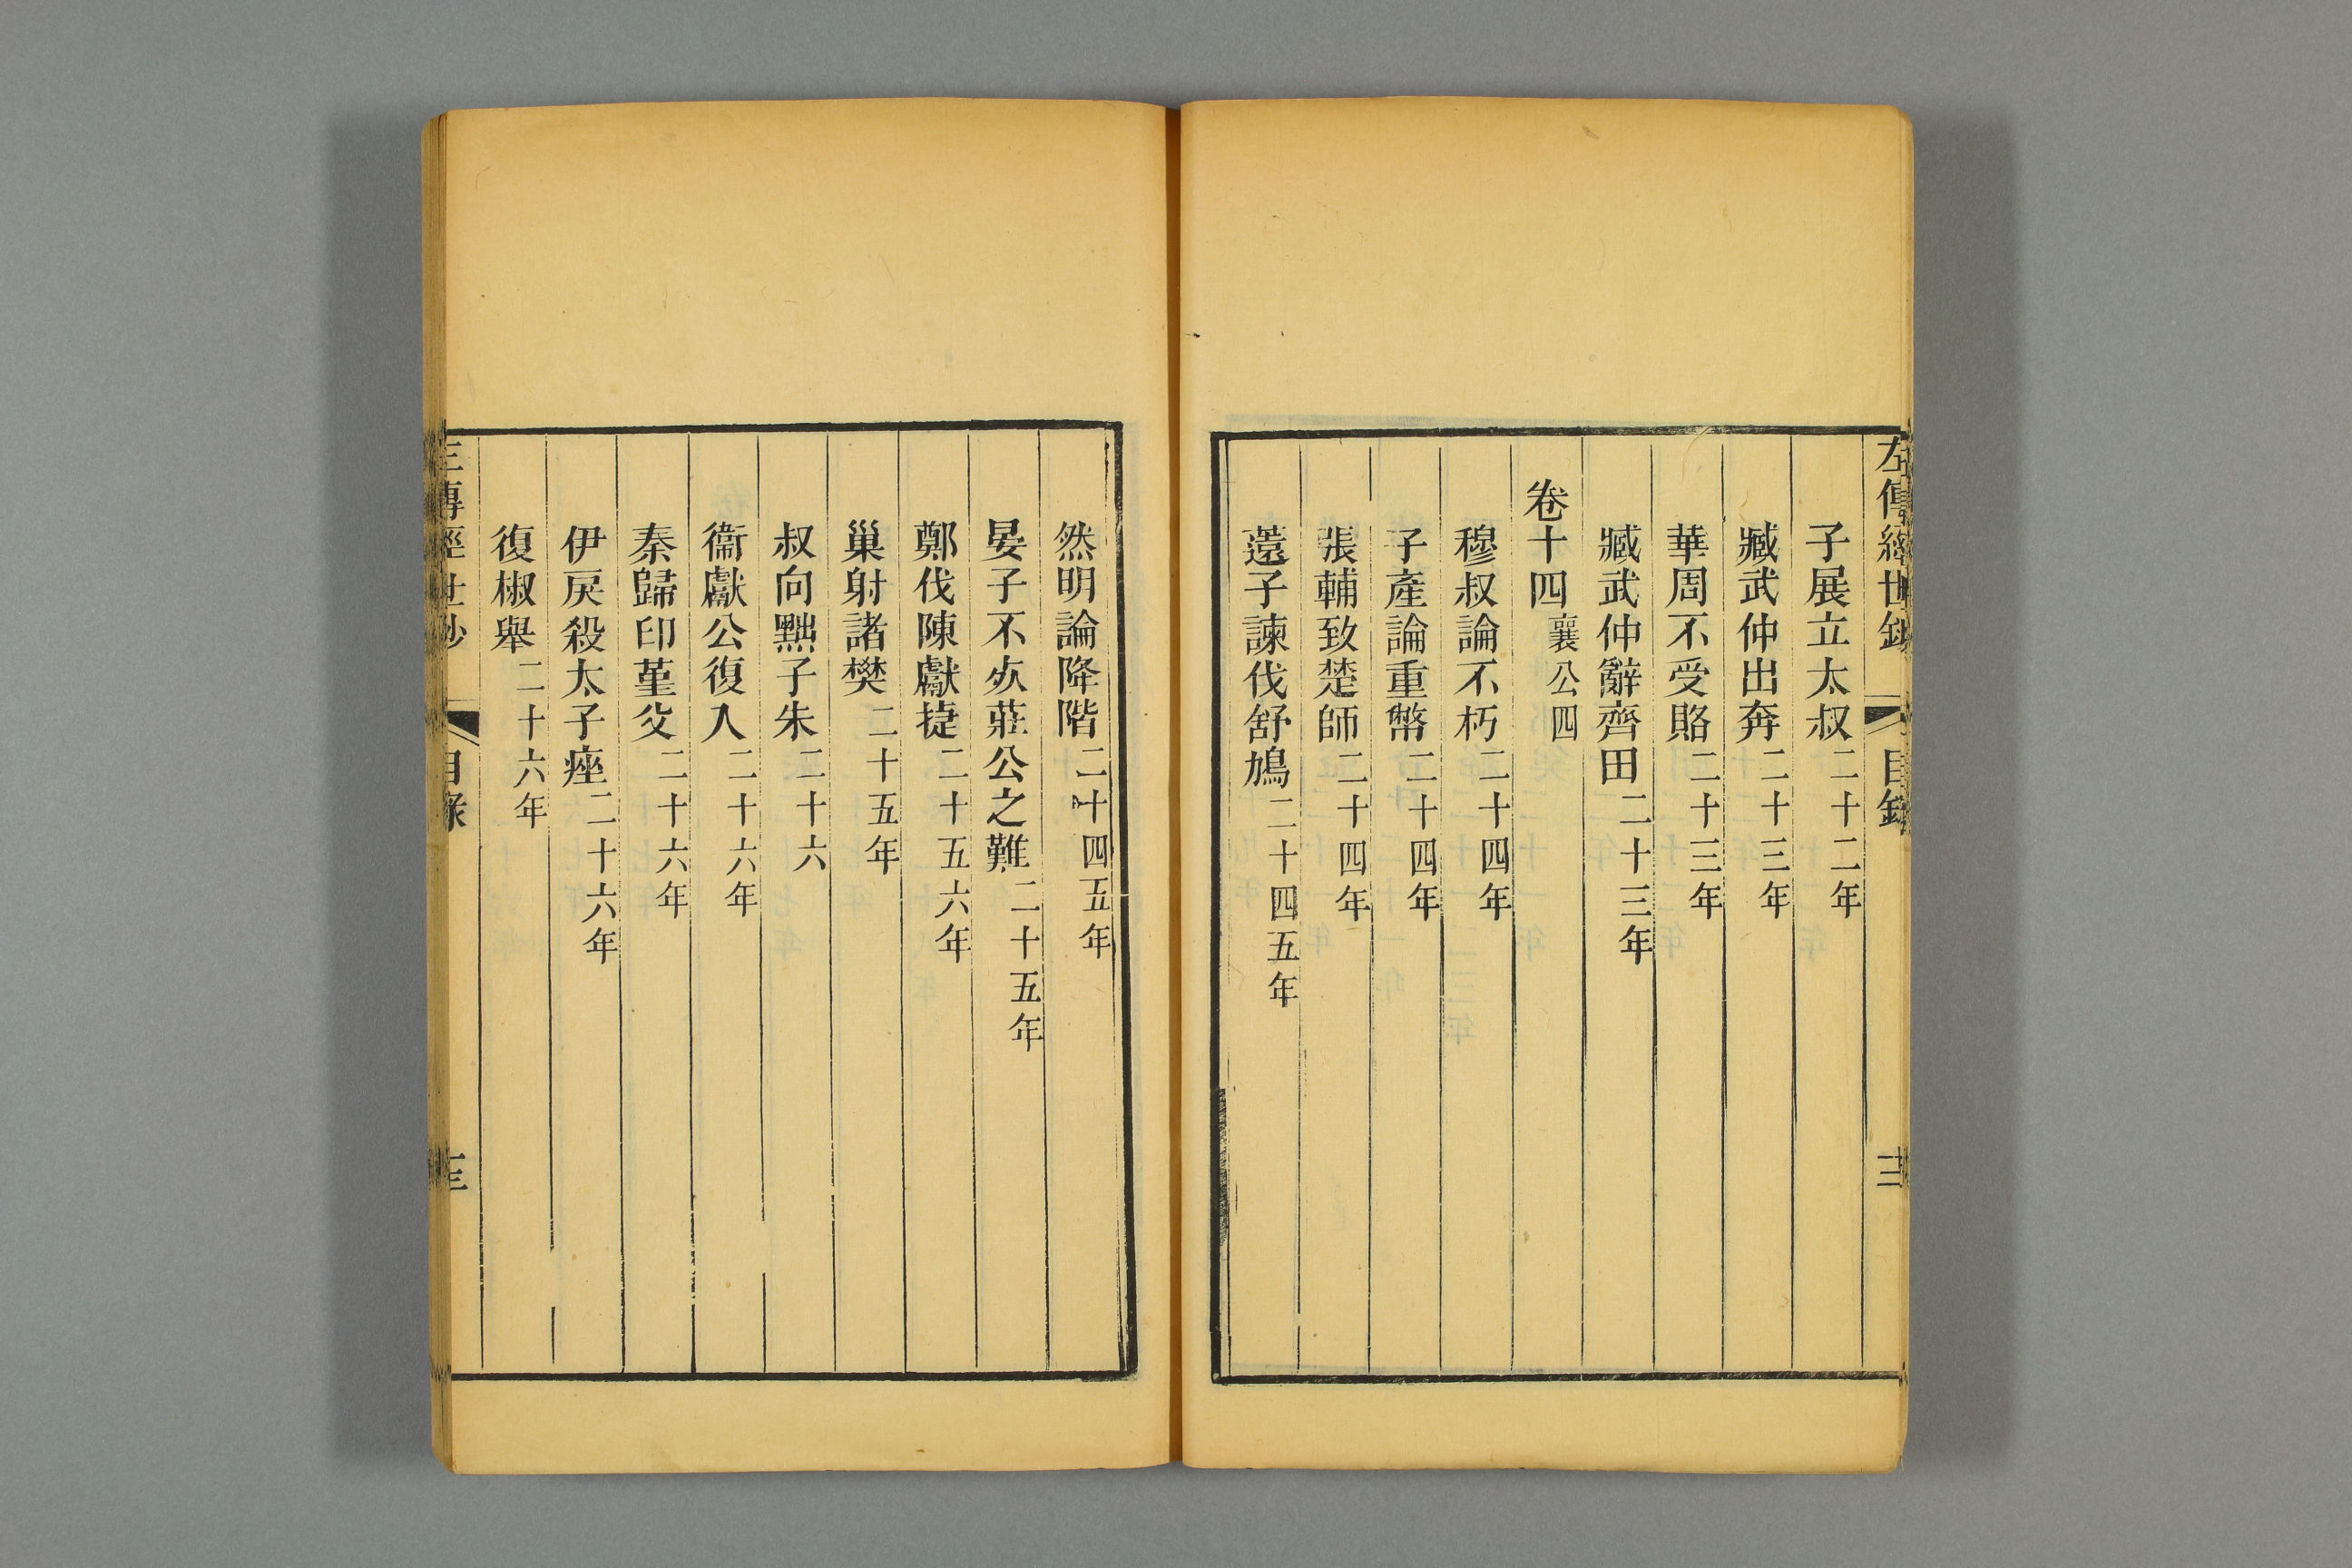 左傳經世鈔 目錄 十三
子展立太叔二十二年
臧武仲出奔二十三年
華周不受賂二十三年
臧武仲辭齊田二十三年
卷十四襄公四
穆叔論不朽二十四年
子產論重幣二十四年
張輔致楚師二十四年
薳子諫伐舒鳩二十四五年
然明論降階二十四五年
晏子不㱙莊公之難二十五年
鄭伐陳獻捷二十五六年
巢射諸樊二十五年
叔向黜子朱二十六
衞獻公復入二十六年
秦歸印堇父二十六年
伊戾殺太子痤二十六年
復椒舉二十六年